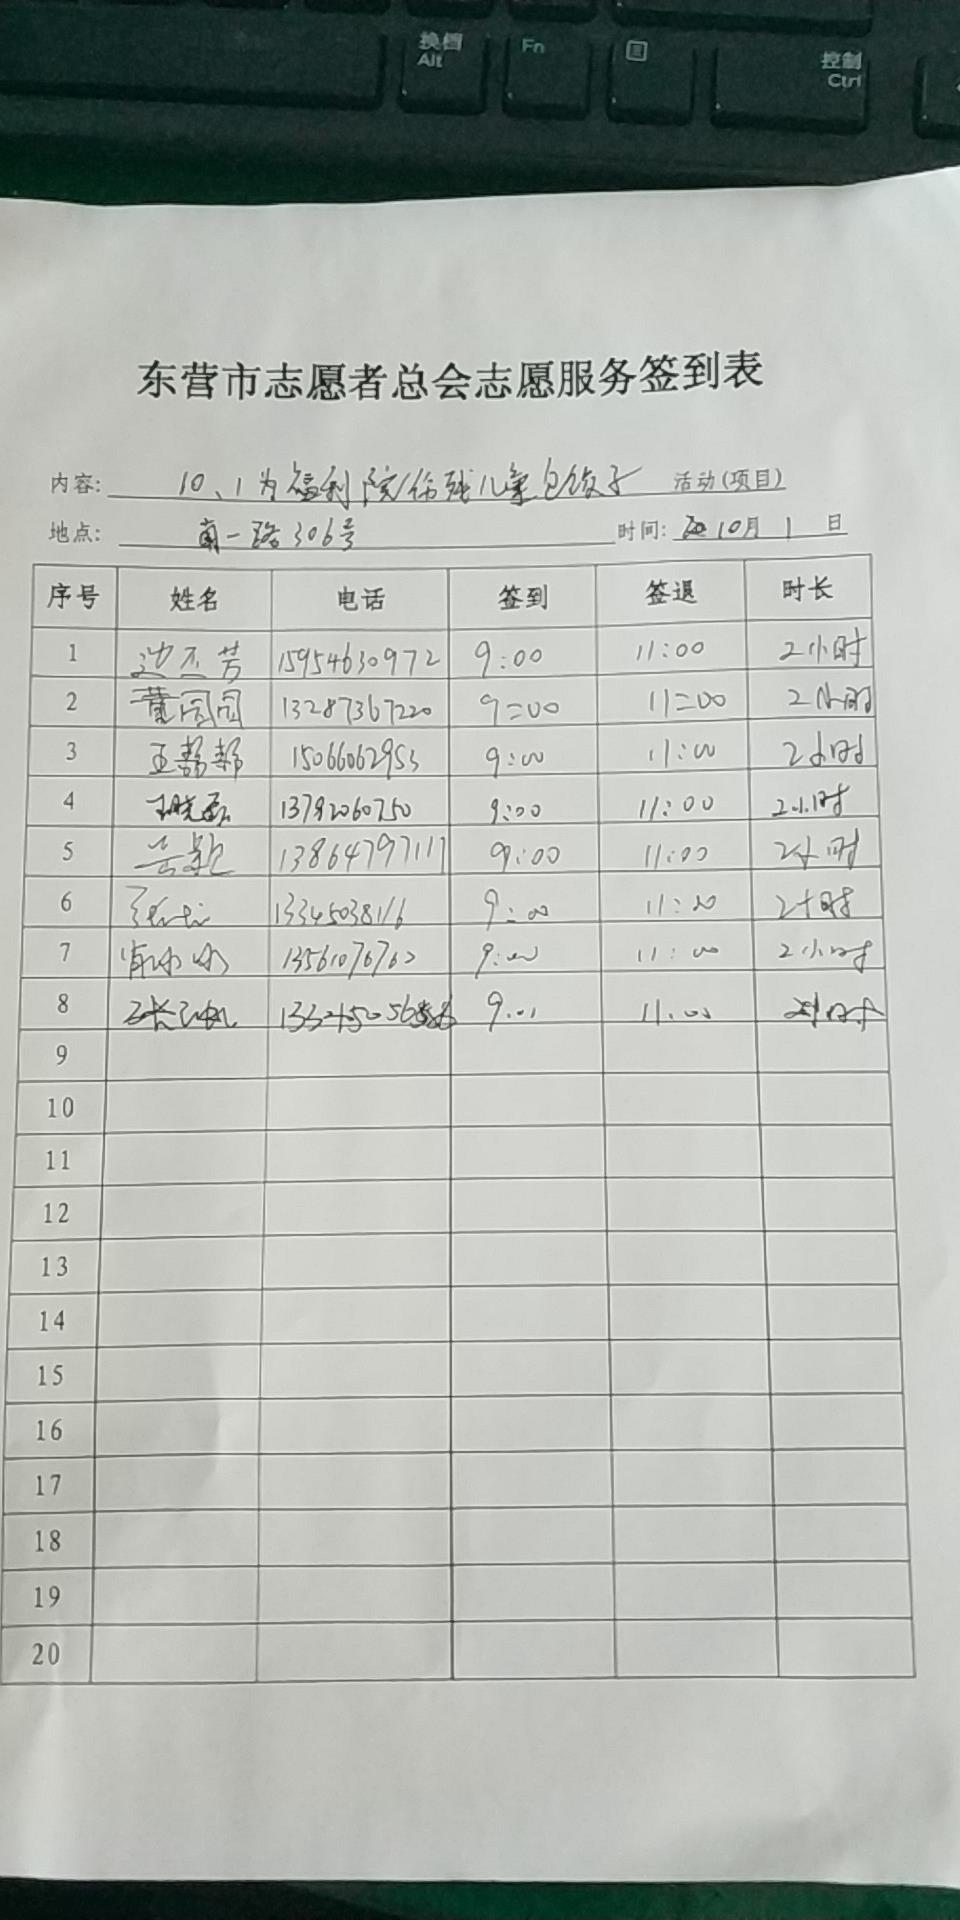 换档
Alt
Fn
控制
Ctrl
东营市志愿者总会志愿服务签到表
内容: 10、1为福利院伤残儿童包饺子 活动(项目)
地点: 南一路306号 时间: 10月1日
序号 姓名 电话 签到 签退 时长
1 芳 15954630972 9:00 11:00 2小时
2 董园园 13287367220 9:00 11:00 2小时
3 王帮帮 15066062953 9:00 11:00 2小时
4 王晓磊 13792060750 9:00 11:00 2小时
5 13864797117 9:00 11:00 2小时
6 9:00 11:00 2小时
7 肖冰冰 13561076762 9:00 11:00 2小时
8 11:00
9
10
11
12
13
14
15
16
17
18
19
20